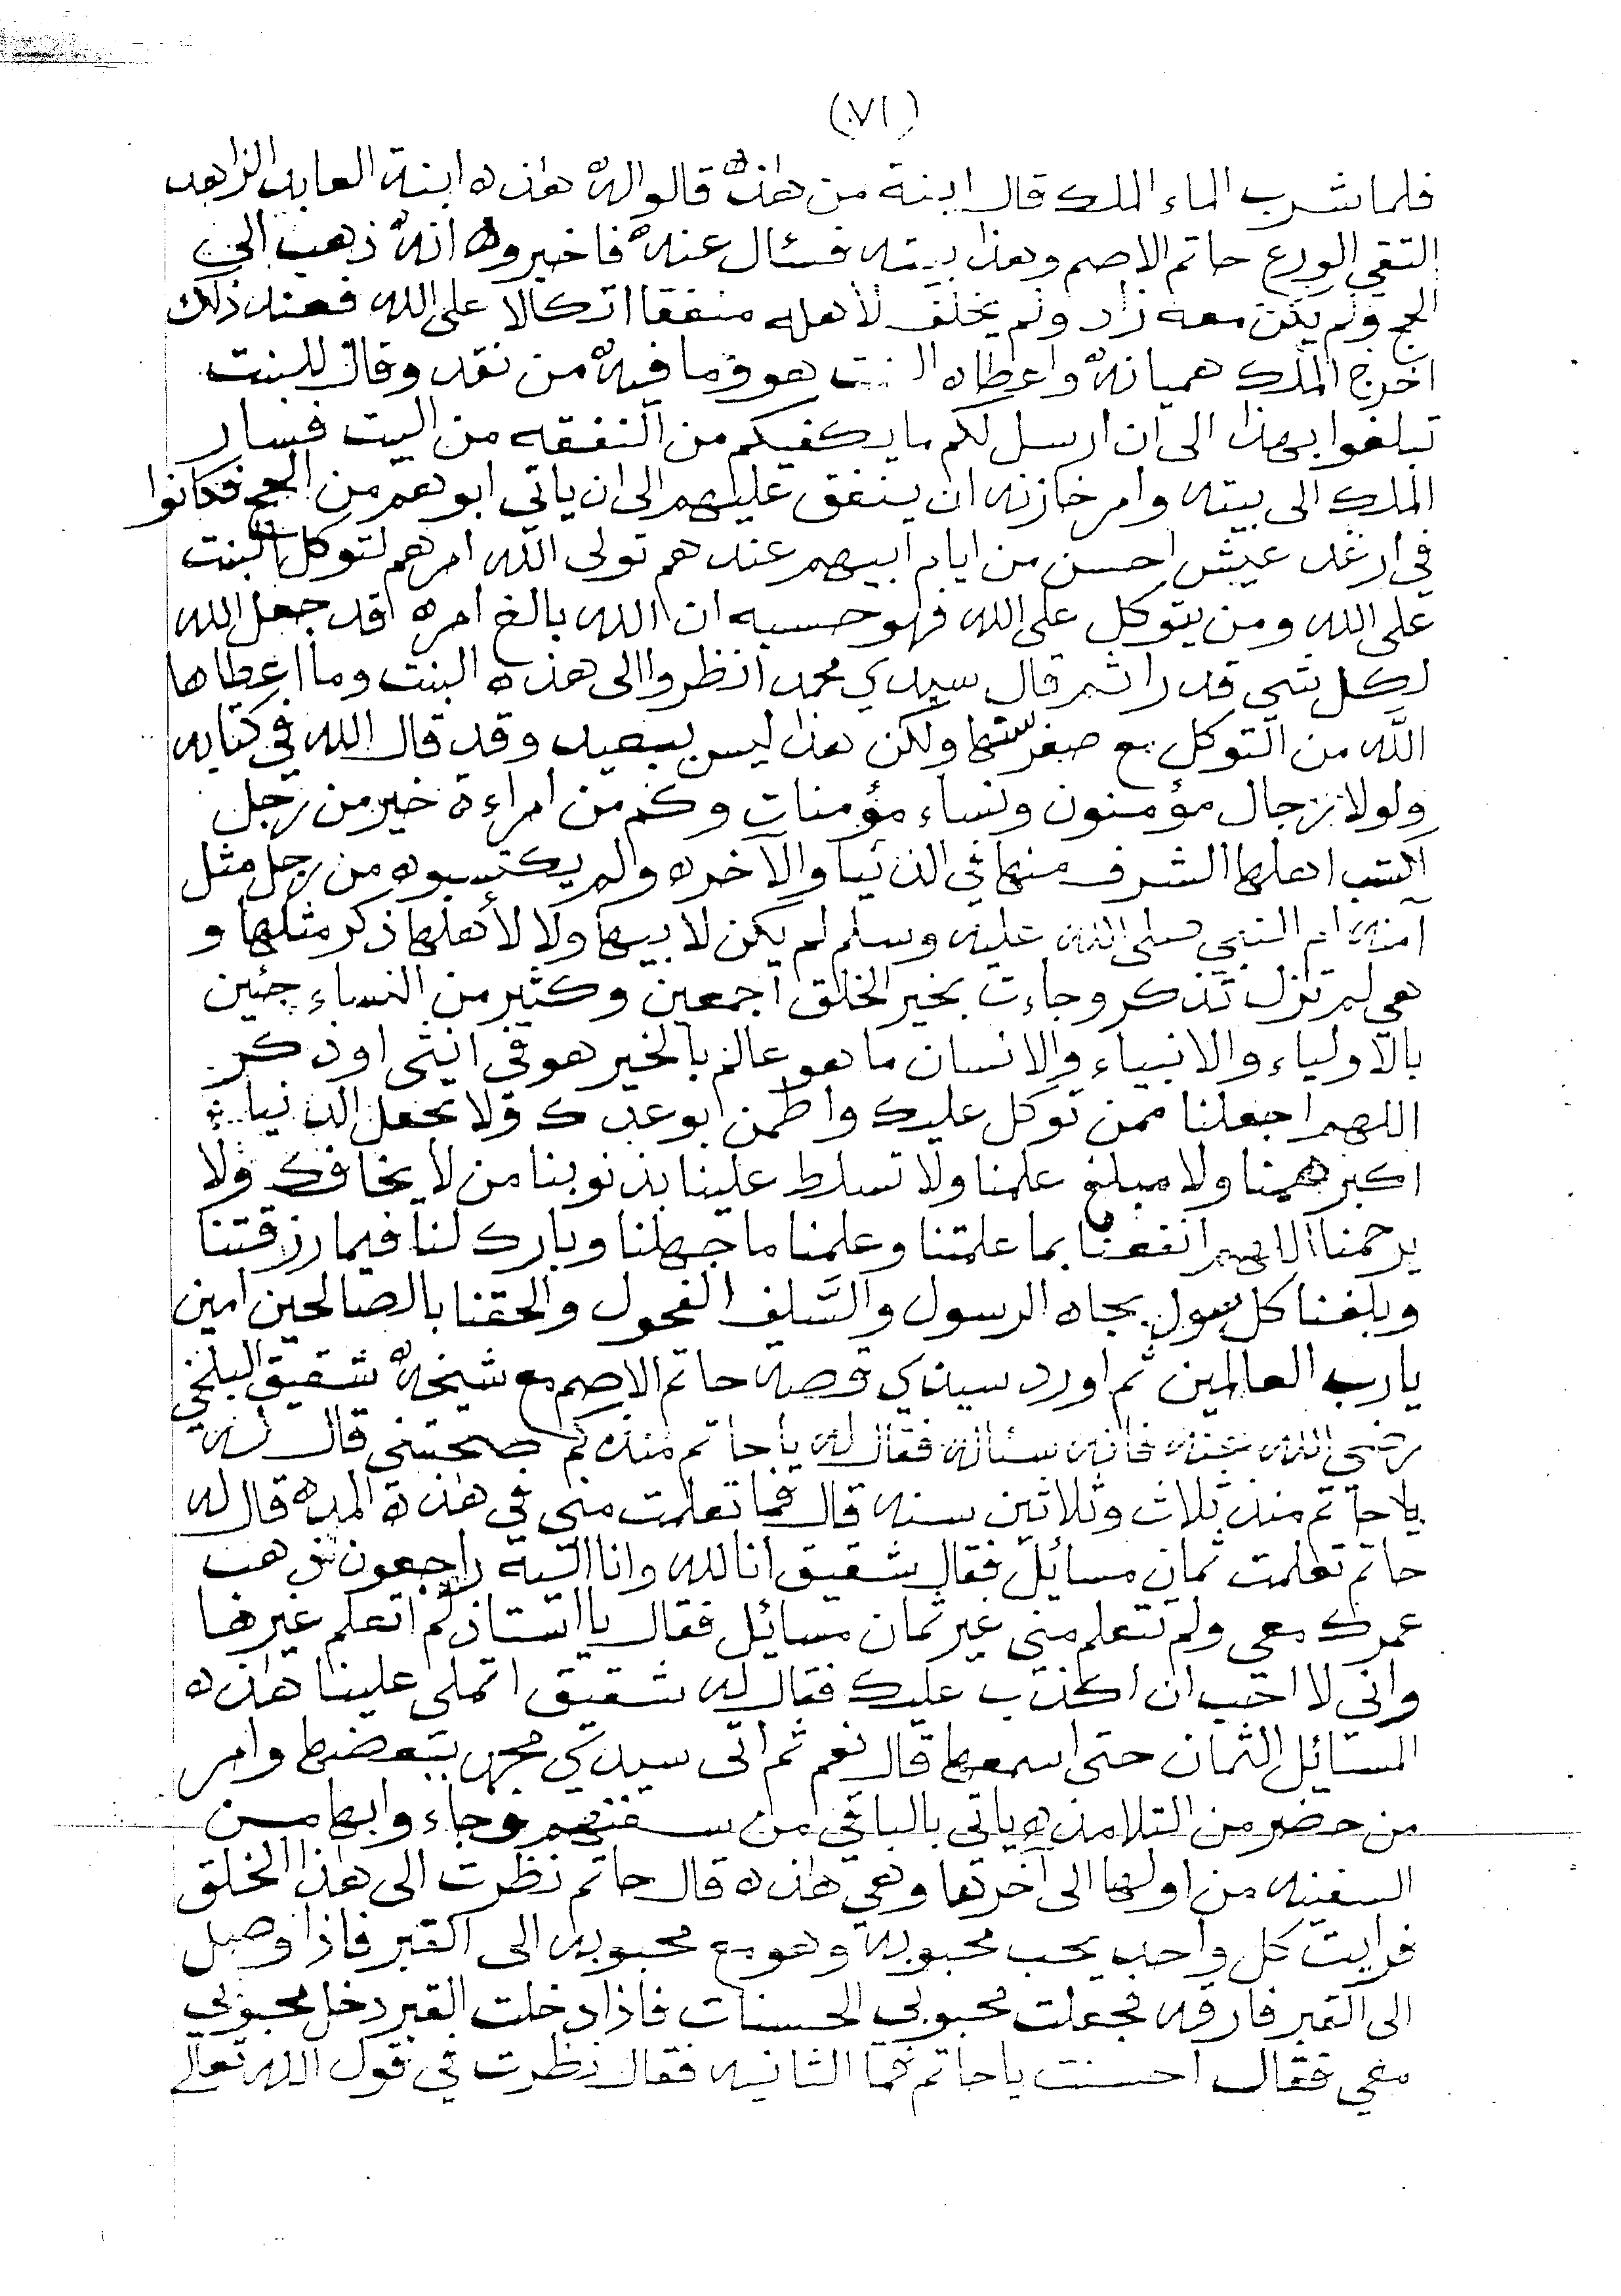 (٧١)
فلما شرب الماء الملك قال ابنة من هاذه قالوا له هاذه ابنة العابد الزاهد
التقي الورع حاتم الاصم وهذا بيته فسئال عنه فاخبروه انه ذهب الى
الحج ولم يكن معه زاد ولم يخلف لأهله منفقا اتكالا على الله فعند ذلك
اخرج الملك هميانه واعطاه البنت هو وما فيه من نقد وقال للبنت
تبلغوا بهذا الى ان ارسل لكم ما يكفيكم من النفقه من البيت فسار
الملك الى بيته وامر خازنه ان ينفق عليهم الى ان ياتي ابوهم من الحج فكانوا
في ارغد عيش احسن من ايام ابيهم عندهم تولى الله امرهم لتوكل البنت
على الله ومن يتوكل على الله فهو حسبه ان الله بالغ امره قد جعل الله
لكل شي قدرا ثم قال سيدي محمد انظروا الى هذه البنت وما اعطاها
الله من التوكل مع صغر سنها ولكن هذا ليس ببعيد وقد قال الله في كتابه
ولولا رجال مؤمنون ونساء مؤمنات وكم من امراءة خير من رجل
اكتسب اهلها الشرف منها في الدنيا والآخره ولم يكتسبوه من رجل مثل
آمنه ام النبي صلى الله عليه وسلم لم يكن لابيها ولا لأهلها ذكر مثلها و
هي لم تزل تذكر وجاءت بخير الخلق اجمعين وكثير من النساء جئين
بالاولياء والانبياء والانسان ما هو عالم بالخير هو في انثى او ذكر
اللهم اجعلنا ممن توكل عليك واطمن بوعدك ولا تجعل الدنيا
اكبر همنا ولا مبلغ علمنا ولا تسلط علينا بذنوبنا من لا يخافك ولا
يرحمنا اللهم انفعنا بما علمتنا وعلمنا ما جهلنا وبارك لنا فيما رزقتنا
وبلغنا كل سول بجاه الرسول والسلف الفحول والحقنا بالصالحين امين
يارب العالمين ثم اورد سيدي قصة حاتم الاصم مع شيخه شقيق البلخي
رضي الله عنه فانه سئاله فقال له يا حاتم منذ كم صحبتني قال له
يا حاتم منذ ثلاث وثلاثين سنه قال فما تعلمت مني في هذه المده قال له
حاتم تعلمت ثمان مسائل فقال شقيق انا لله وانا اليه راجعون ذهب
عمرك معي ولم تتعلم مني غير ثمان مسائل فقال يا استاذ لم اتعلم غيرها
واني لا احب ان اكذب عليك فقال له شقيق اتملي علينا هاذه
المسائل الثمان حتى اسمعها قال نعم ثم اتى سيدي محمد ببعضها وامر
من حضر من التلامذه ياتي بالباقي من سفنتهم وجاءوا بها من
السفينه من اولها الى آخرتها وهي هاذه قال حاتم نظرت الى هذا الخلق
فرايت كل واحد يحب محبوبه وهو مع محبوبه الى القبر فاذا وصل
الى القبر فارقه فجعلت محبوبي الحسنات فاذا دخلت القبر دخل محبوبي
معي فقال احسنت يا حاتم فما الثانيه فقال نظرت في قول الله تعالى